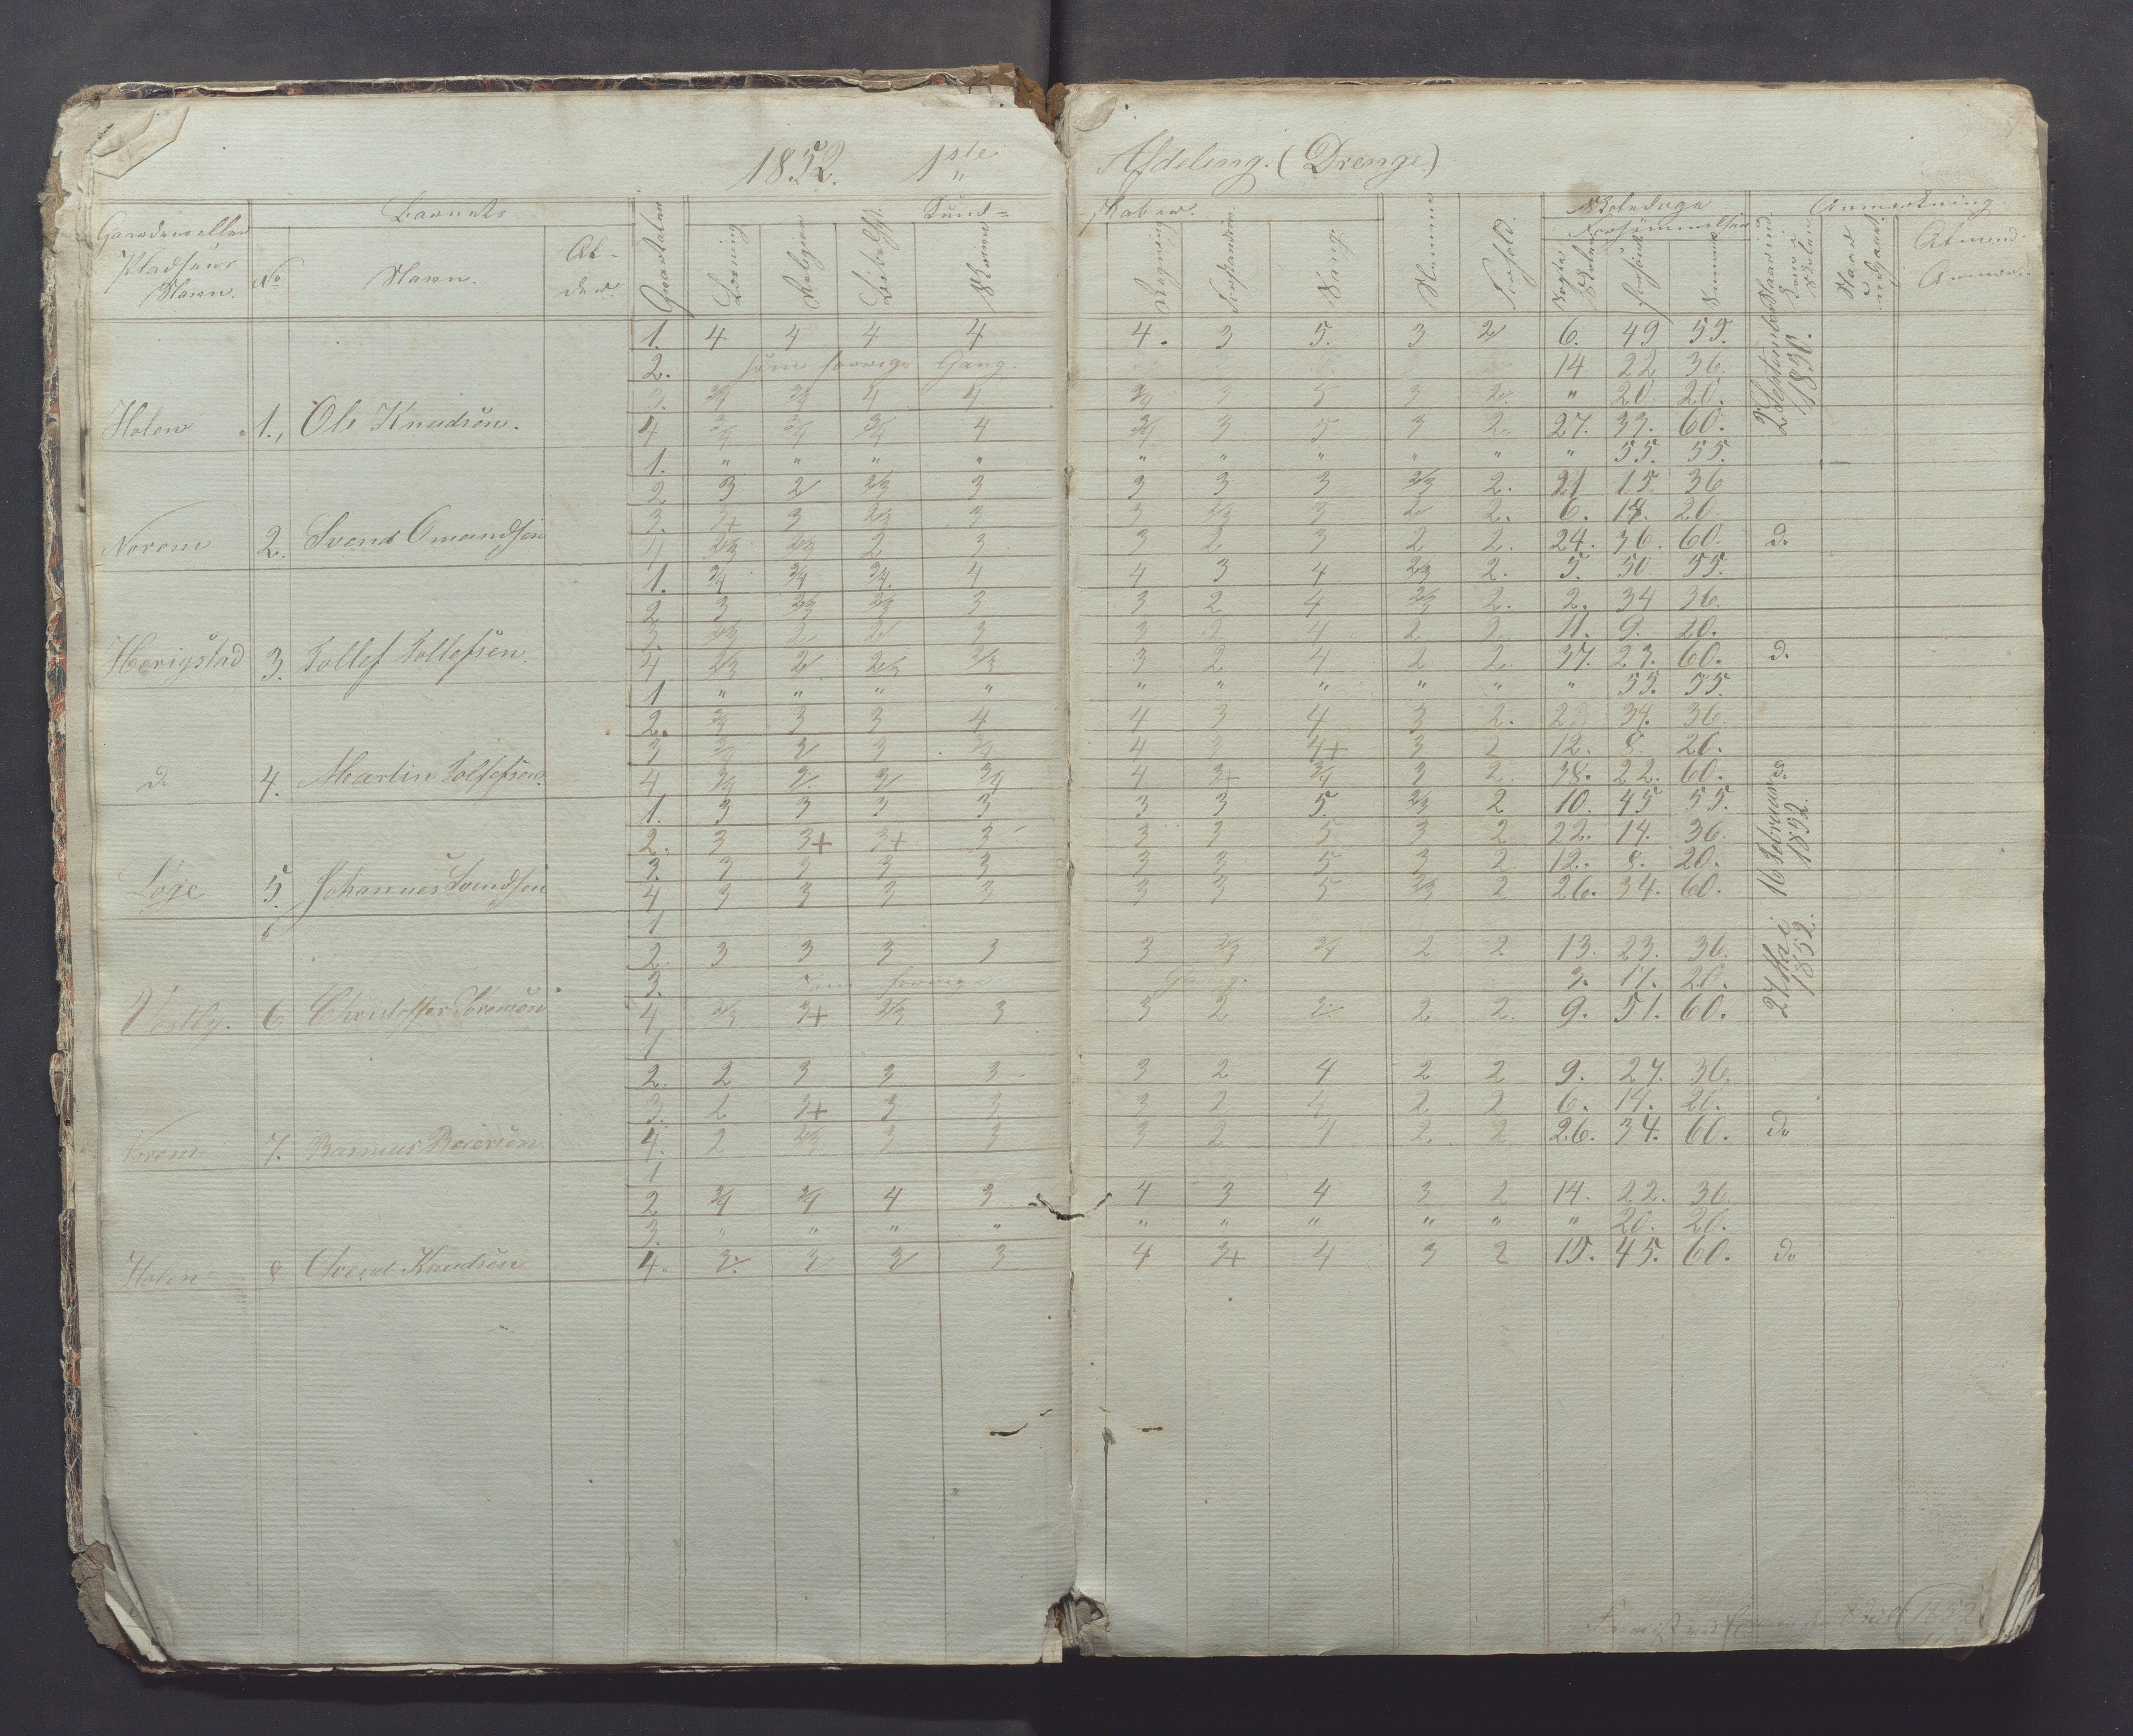 1852. 1ste Afdeling. (Drenge)
Gaardens eller Pladsens Navn. Barnets Kund= skaber. Skoledage Anmærkning.
No Navn. Al- der. Qvartaler Læsning Religion Skrivn Regning Forstandsøv. Sang. Nemme Forhold. Søgte Skolen Forsømt Summa Almind. Anmærk.
1. 4 4 4 4 4. 3 5. 3 2 6. 49 55. 2 September 1850.
2. som forrige Gang. 14 22 36.
3. 3/4 3/4 4 4 3/4 3 5 3 2. " 20 20.
Holen 1. Ole Knudsen. 4 3/4 3/4 3/4 4 3/4 3 5 3 2. 27. 33. 60.
1. " " " " " " " " " " 55. 55.
2 3 2 2/3 3 3 3 3 2/3 2. 21 15 36
3. 3+ 3 2/3 3 3 2/3 3 2 2. 6. 14. 20
Norem 2. Svend Omundsen 4 2/3 2/3 2 3 3 2 3 2 2. 24. 36. 60. do
1. 3/4 3/4 3/4 4 4 3 4 2/3 2. 5. 50 55.
2 3 2/3 2/3 3 3 2 4 2/3 2. 2. 34 36.
3. 2/3 2 2 3 3 2 4 2 2 11. 9. 20.
Herigstad 3. Tollef Tollefsen. 4 2/3 2 2/3 2/3 3 2 4 2 2. 37. 23. 60. do
1 " " " " " " " " " " 55. 55.
2. 3/4 3 3 4 4 3 4 3 2. 2 34. 36.
3 3/4 3 3 3/4 4 3 4+ 3 2 12. 8. 20.
do 4. Martin Tollefsen. 4 3/4 3 3 3/4 4 3+ 3/4 3 2. 38. 22. 60. do
1. 3 3 3 3 3 3 5. 2/3 2 10. 45 55. 16 Februar 1852.
2. 3 3+ 3+ 3 3 3 5 3 2 22. 14. 36.
3. 3 3 3 3 3 3 5 3 2. 12. 8. 20.
Løge 5. Johannes Svendsen 4 3 3 3 3 3 3 5 2/3 2 26. 34. 60.
1
2. 3 3 3 3 3 2/3 3/4 2 2 13. 23. 36. 24 Mai 1852.
3. som forrige Gang. 3. 17. 20.
Vestly. 6 4. 2/3 3+ 2/3 3 3 2 2 2. 9. 51. 60.
1
2. 2 3 3 3 3 2 4 2 2 9. 27. 36.
3. 2 3+ 3 3 3 2 4 2 2 6. 14. 20.
Norem 7. Rasmus 4. 2 2/3 3 3 3 2 4 2. 2 26. 34. 60. do
1
2 3/4 3/4 4 3 4 3 4 3 2 14. 22. 36
3. " " " " " " " " " " 20. 20.
Holen 8 Svend Knudsen 4. 3. 3 3 3 4 3+ 4 3 2 15. 45. 60. do
1852